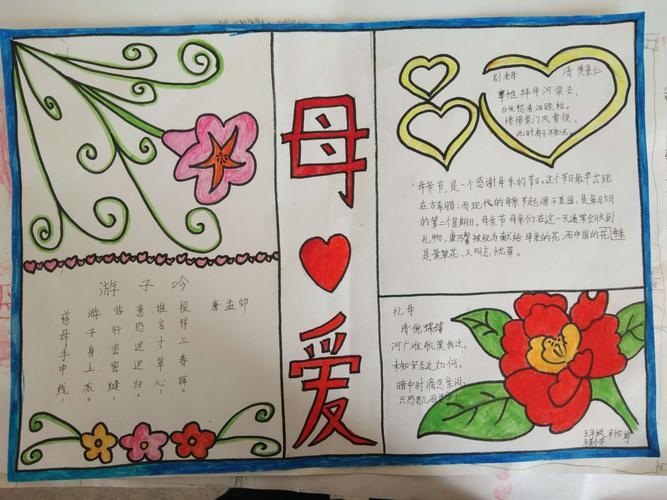 游子吟
唐孟郊
慈母手中线，
游子身上衣。
临行密密缝，
意恐迟迟归。
谁言寸草心，
报得三春晖。
母
爱
别老母 清 黄景仁
拜母河梁去，
白发愁看泪眼枯。
惨惨柴门风雪夜，
此时有子不如无。
母亲节，是一个感谢母亲的节日。这个节日最早出现
在古希腊；而现代的母亲节起源于美国，是每年5月
的第二个星期日。母亲节母亲们在这一天通常会收到
礼物，康乃馨被视为献给母亲的花，而中国的花母亲
是萱草花，又叫忘忧草。
忆母
清倪瑞璿
河广难航莫我过，
未知安否近如何。
暗中时滴思亲泪，
只恐思儿泪更多。
五年级